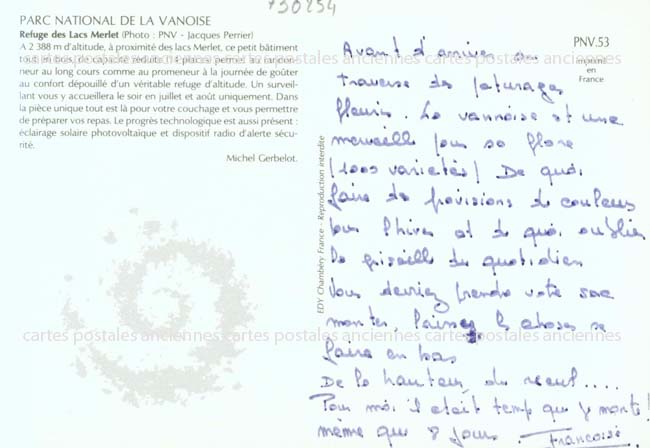 730254
PARC NATIONAL DE LA VANOISE
Refuge des Lacs Merlet (Photo : PNV - Jacques Perrier)
A 2 388 m d'altitude, à proximité des lacs Merlet, ce petit bâtiment
tout en bois, de capacité réduite : 14 places, permet au randon-
neur au long cours comme au promeneur à la journée de goûter
au confort dépouillé d'un véritable refuge d'altitude. Un surveil-
lant vous y accueillera le soir en juillet et août uniquement. Dans
la pièce unique tout est là pour votre couchage et vous permettre
de préparer vos repas. Le progrès technologique est aussi présent :
éclairage solaire photovoltaïque et dispositif radio d'alerte sécu-
rité.
Michel Gerbelot.
EDY Chambéry France - Reproduction interdite
PNV.53
Imprimé
en
France
Avant d'arriver on
traverse des paturages
fleuris. La vannoise est une
merveille pour sa flore
(1000 varietés) De quoi
faire des provisions de couleurs
pour l'hiver et de quoi oublier
la grisaille du quotidien
Vous devriez prendre votre sac
monter, laissez les choses se
faire en bas
De la hauteur, du recul....
Pour moi il etait temp que je monte!
même que 8 jours Francoise
cartes postales anciennes cartes postales anciennes cartes postales anciennes
cartes postales anciennes cartes postales anciennes cartes postales anciennes